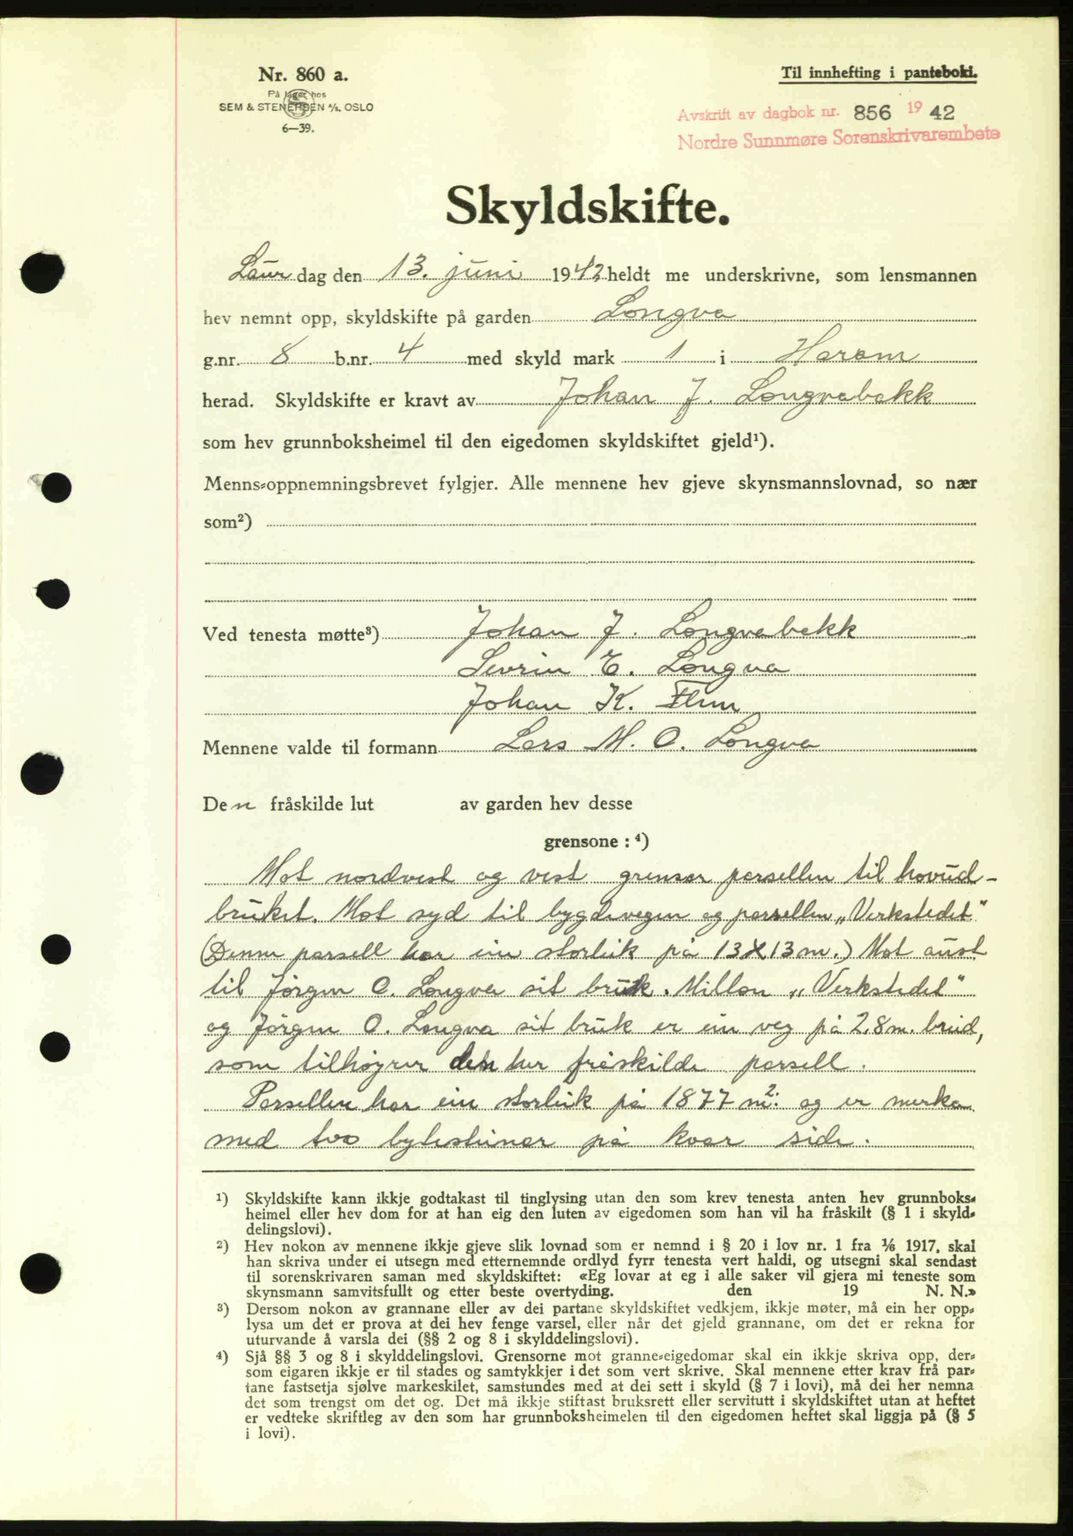 Nr. 860 a.
På lager hos
SEM & STENERSEN A/S. OSLO
6—39.
Til innhefting i panteboki.
Avskrift av dagbok nr. 856 1942
Nordre Sunnmøre Sorenskrivarembete
Skyldskifte.
Laurdag den 13. juni 1942 heldt me underskrivne, som lensmannen
hev nemnt opp, skyldskifte på garden Longva
g.nr. 8 b.nr. 4 med skyld mark 1 i Haram
herad. Skyldskifte er kravt av Johan J. Longvabekk
som hev grunnboksheimel til den eigedomen skyldskiftet gjeld¹).
Menns-oppnemningsbrevet fylgjer. Alle mennene hev gjeve skynsmannslovnad, so nær
som²)
Ved tenesta møtte³) Johan J. Longvabekk
Sevrin E. Longva
Johan K. Flem
Mennene valde til formann Lars M. O. Longva
Den fråskilde lut av garden hev desse
grensone : ⁴)
Mot nordvest og vest grensar parsellen til hovud-
bruket. Mot syd til bygdevegen og parsellen „Verkstedet"
(Denne parsell har ein storleik på 13 X 13 m.) Mot aust
til Jørgen O. Longva sit bruk. Millom „Verkstedet"
og Jørgen O. Longva sit bruk er ein veg på 2,8 m. breid,
som tilhøyrer den her fråskilde parsell.
Parsellen har ein storleik på 1877 m². og er merka
med tvo bytesteinar på kvar side.
¹) Skyldskifte kann ikkje godtakast til tinglysing utan den som krev tenesta anten hev grunnboks-
heimel eller hev dom for at han eig den luten av eigedomen som han vil ha fråskilt (§ 1 i skyld-
delingslovi).
²) Hev nokon av mennene ikkje gjeve slik lovnad som er nemnd i § 20 i lov nr. 1 fra 1/6 1917, skal
han skriva under ei utsegn med etternemnde ordlyd fyrr tenesta vert haldi, og utsegni skal sendast
til sorenskrivaren saman med skyldskiftet: «Eg lovar at eg i alle saker vil gjera mi teneste som
skynsmann samvitsfullt og etter beste overtyding. den 19 N. N.»
³) Dersom nokon av grannane eller av dei partane skyldskiftet vedkjem, ikkje møter, må ein her opp-
lysa um det er prova at dei hev fenge varsel, eller når det gjeld grannane, om det er rekna for
uturvande å varsla dei (§§ 2 og 8 i skylddelingslovi).
⁴) Sjå §§ 3 og 8 i skylddelingslovi. Grensorne mot granne-eigedomar skal ein ikkje skriva opp, der-
som eigaren ikkje er til stades og samtykkjer i det som vert skrive. Skal mennene etter krav frå par-
tane fastsetja sjølve markeskilet, samstundes med at dei sett i skyld (§ 7 i lovi), må dei her nemna
det som trengst om det og. Det må ikkje stiftast bruksrett eller servitutt i skyldskiftet utan at heftet
er vedteke skriftleg av den som har grunnboksheimelen til den eigedomen heftet skal liggja på (§ 5
i lovi).